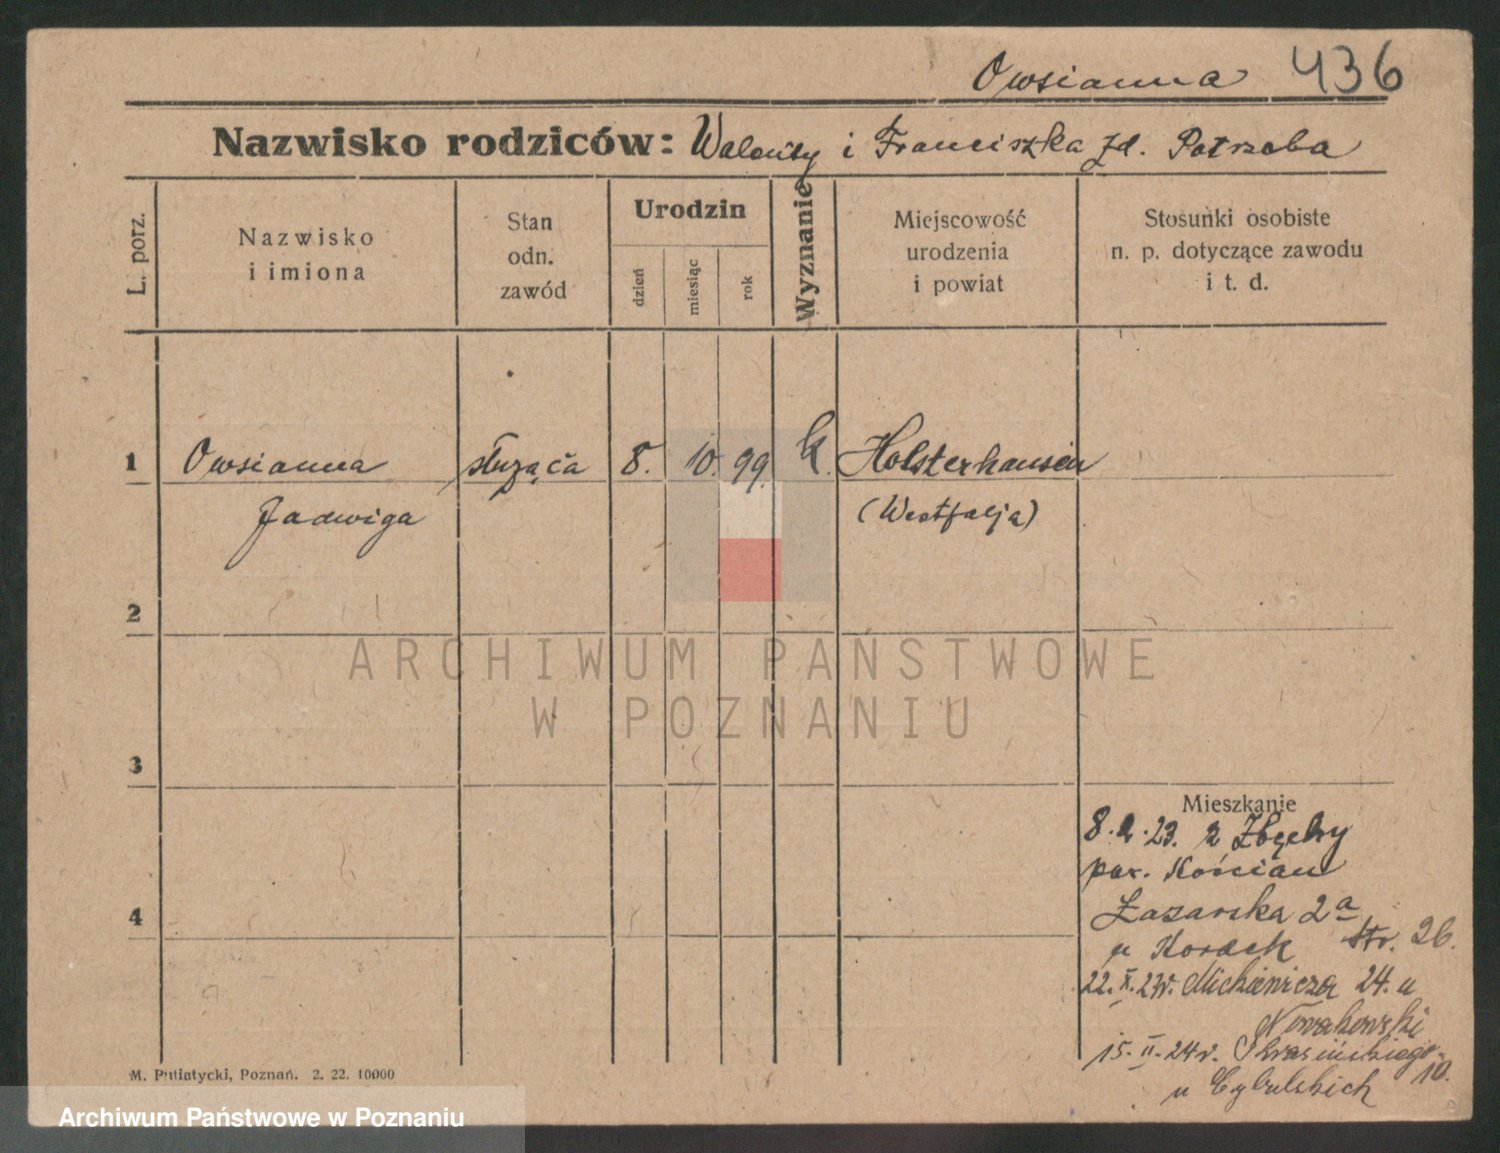 Owsianna 436
Nazwisko rodziców: Walenty i Franciszka zd. Potrzeba
L. porz.
Nazwisko
i imiona
Stan
odn.
zawód
Urodzin
dzień
miesiąc
rok
Wyznanie
Miejscowość
urodzenia
i powiat
Stosunki osobiste
n. p. dotyczące zawodu
i t. d.
1 Owsianna służąca 8. 10. 99. k. Holsterhausen
Jadwiga (Westfalja)
2
3
4
ARCHIWUM PAŃSTWOWE
W POZNANIU
Mieszkanie
8. 2. 23. z Zbęchy
pow. Kościan
Łazarska 2a
u Kordek str. 26.
22. X. 23r. Mickiewicza 24. u
Nowakowski
15. II. 24r. Skrasińskiego 10.
u Cybulskich
M. Putiatycki, Poznań. 2. 22. 10000
Archiwum Państwowe w Poznaniu